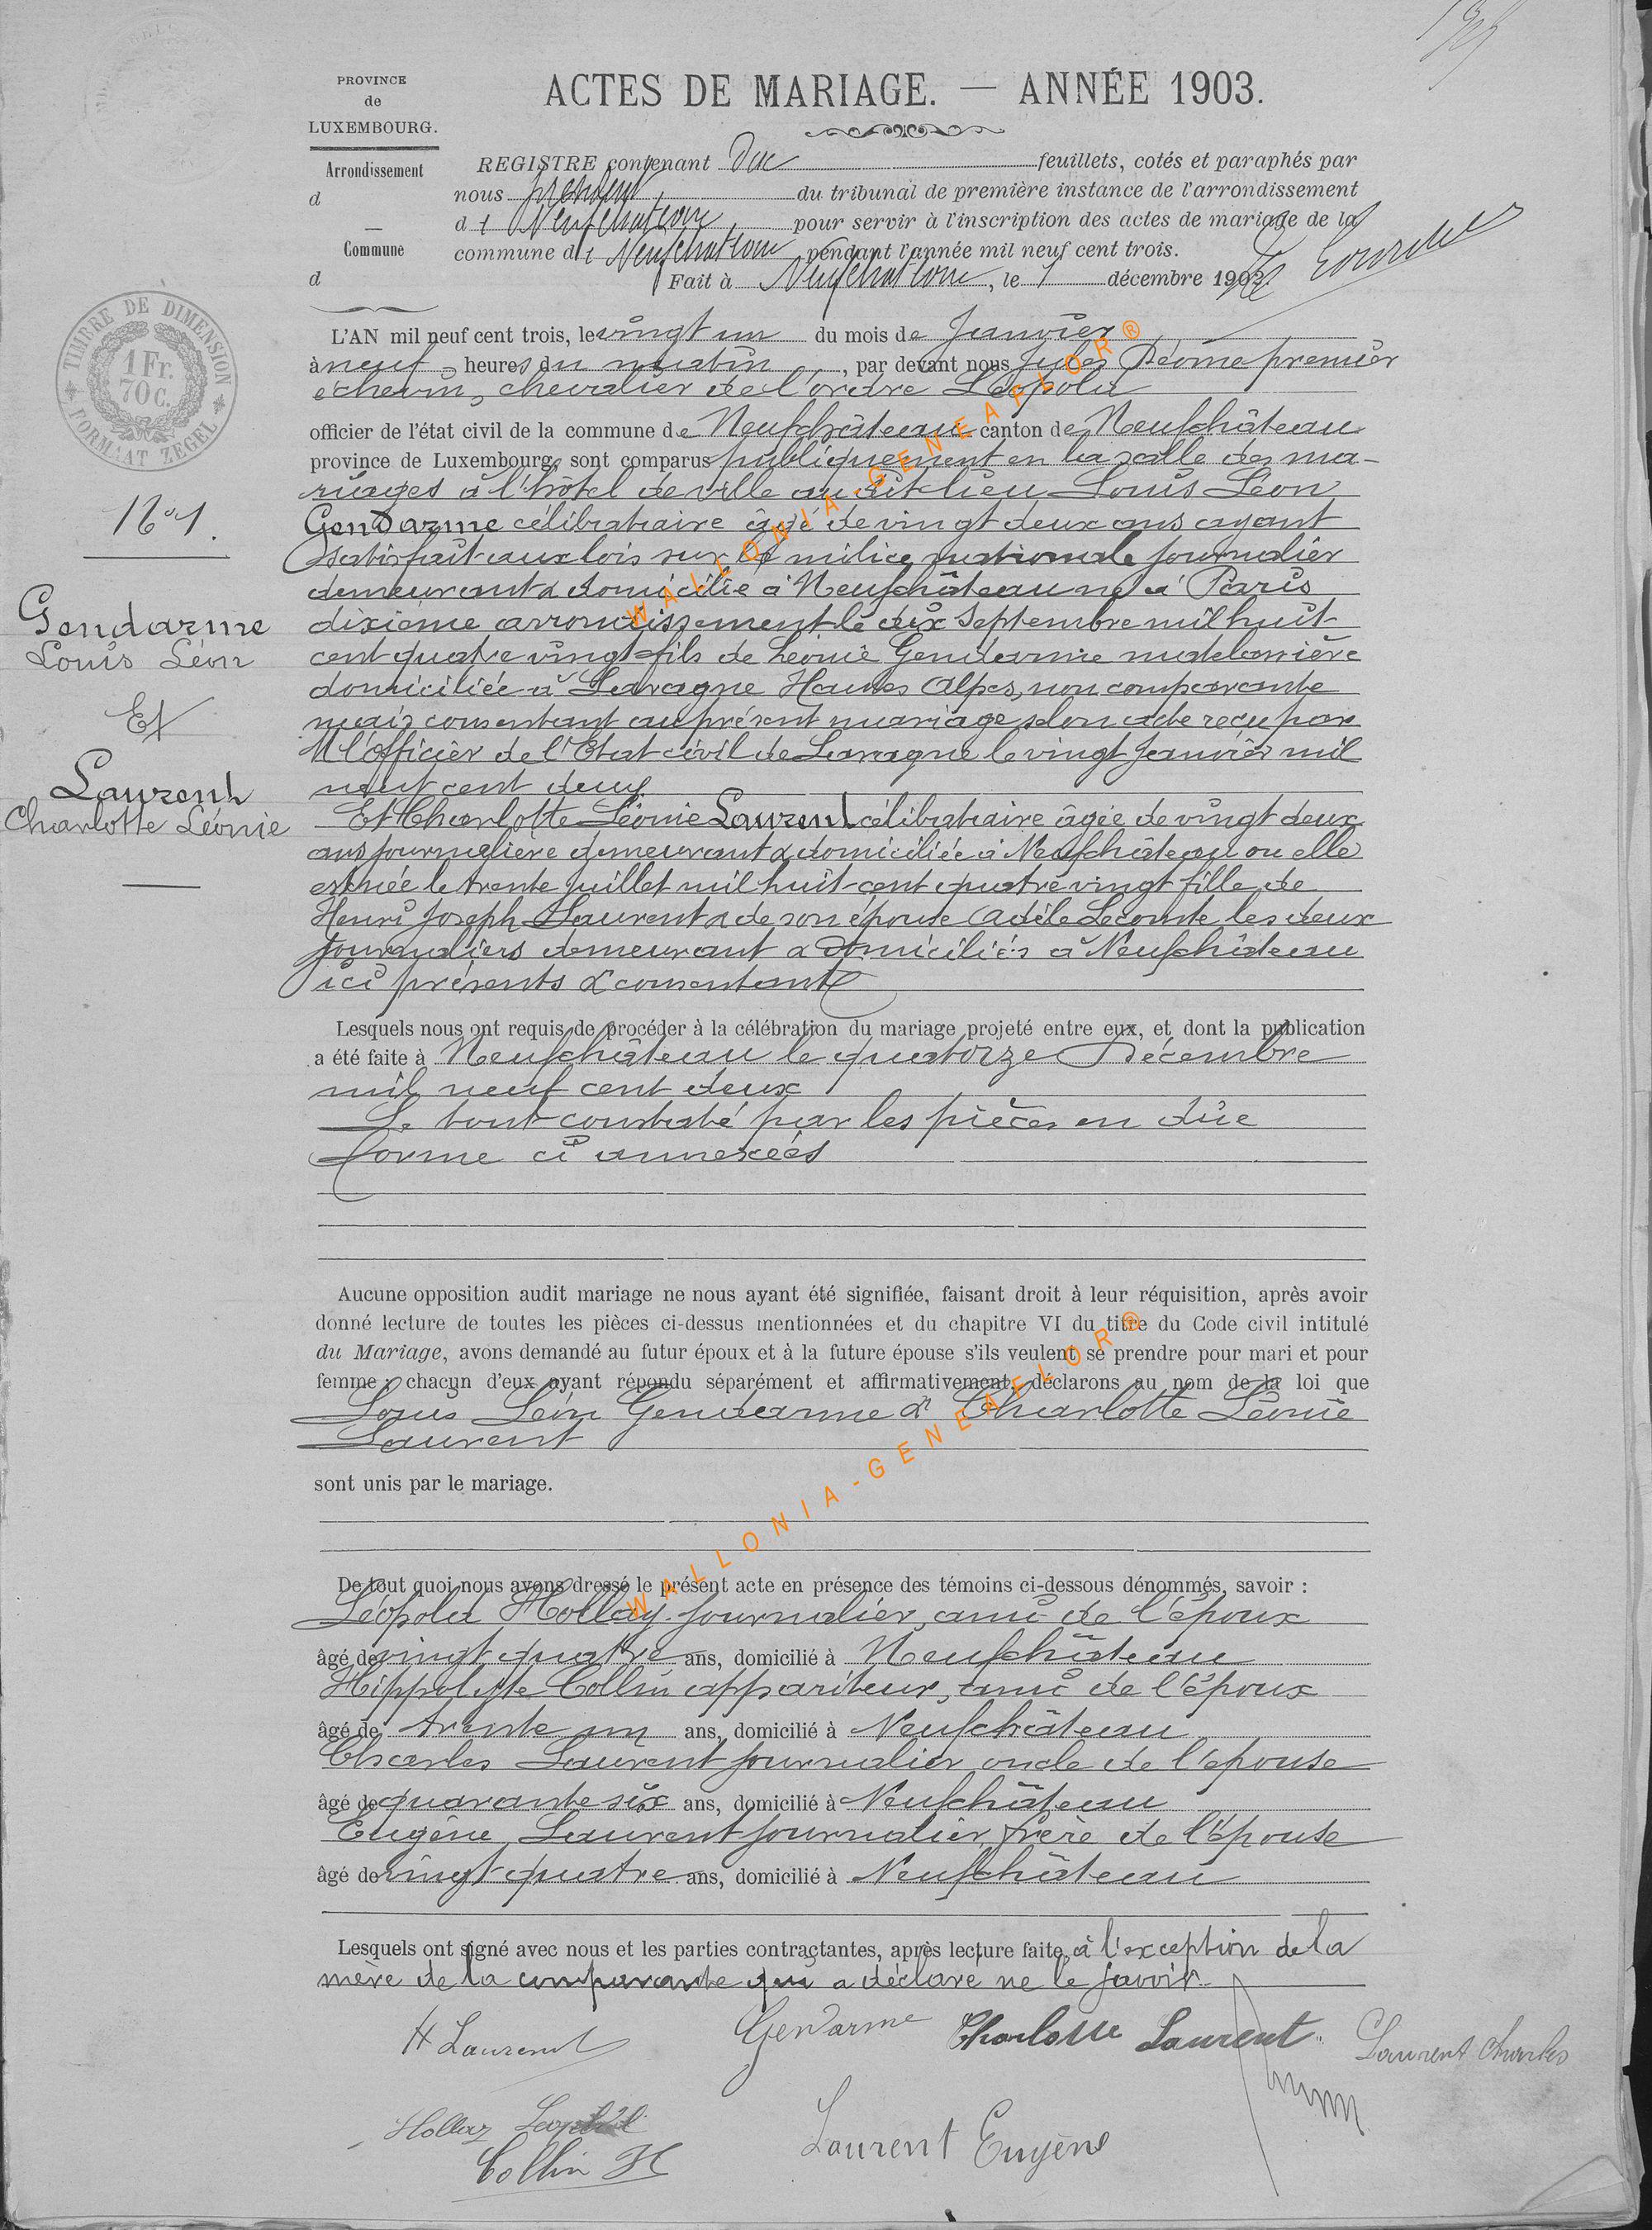 PROVINCE
de
LUXEMBOURG.
Arrondissement
d
Commune
d
ACTES DE MARIAGE. — ANNÉE 1903.
REGISTRE contenant feuillets, cotés et paraphés par
nous président du tribunal de première instance de l'arrondissement
de Neufchateau pour servir à l'inscription des actes de mariage de la
commune de Neufchateau pendant l'année mil neuf cent trois.
Fait à Neufchateau, le 1 décembre 1902.
TIMBRE DE DIMENSION
1 Fr.
70 C.
FORMAAT ZEGEL
L'AN mil neuf cent trois, le vingt un du mois de Janvier
à neuf heures du matin, par devant nous Jules premier
echevin, chevalier de l'ordre Léopold
officier de l'état civil de la commune de Neufchâteau canton de Neufchâteau
province de Luxembourg, sont comparus publiquement en la salle des ma-
riages à l'hôtel de ville au dit lieu Louis Léon
Gendarme célibataire âgé de vingt deux ans ayant
satisfait aux lois sur la milice nationale journalier
demeurant & domicilié à Neufchâteau né à Paris
dixième arrondissement le deux Septembre mil huit
cent quatre vingt fils de Léonie Gendarme matelassière
domiciliée à Laragne Hautes Alpes, non comparante
mais consentant au présent mariage selon acte reçu par
M l'officier de l'Etat civil de Laragne le vingt Janvier mil
neuf cent deux
Et Charlotte Léonie Laurent célibataire âgée de vingt deux
ans journalière demeurant & domiciliée à Neufchâteau ou elle
est née le trente juillet mil huit cent quatre vingt fille de
Henri Joseph Laurent & de son épouse Adèle Lecomte les deux
journaliers demeurant & domiciliés à Neufchâteau
ici présents & consentants
No 1.
Gendarme
Louis Léon
Et
Laurent
Charlotte Léonie
Lesquels nous ont requis de procéder à la célébration du mariage projeté entre eux, et dont la publication
a été faite à Neufchâteau le quatorze Décembre
mil neuf cent deux
Le tout constaté par les pièces en dûe
forme ci annexées
Aucune opposition audit mariage ne nous ayant été signifiée, faisant droit à leur réquisition, après avoir
donné lecture de toutes les pièces ci-dessus mentionnées et du chapitre VI du titre du Code civil intitulé
du Mariage, avons demandé au futur époux et à la future épouse s'ils veulent se prendre pour mari et pour
femme : chacun d'eux ayant répondu séparément et affirmativement, déclarons au nom de la loi que
Louis Léon Gendarme & Charlotte Léonie
Laurent
sont unis par le mariage.
De tout quoi nous avons dressé le présent acte en présence des témoins ci-dessous dénommés, savoir :
Léopold Hollay journalier, ami de l'époux
âgé de vingt quatre ans, domicilié à Neufchâteau
Hippolyte Collin appariteur, ami de l'époux
âgé de trente un ans, domicilié à Neufchâteau
Charles Laurent journalier oncle de l'epouse
âgé de quarante six ans, domicilié à Neufchâteau
Eugène Laurent journalier frère de l'épouse
âgé de vingt quatre ans, domicilié à Neufchâteau
Lesquels ont signé avec nous et les parties contractantes, après lecture faite, à l'exception de la
mère de la comparante qui a déclaré ne le savoir.
H Laurent Gendarme Charlotte Laurent Laurent Charles
Hollay Leopold
Collin H Laurent Eugène
WALLONIA-GENEAFLOR®
WALLONIA-GENEAFLOR®